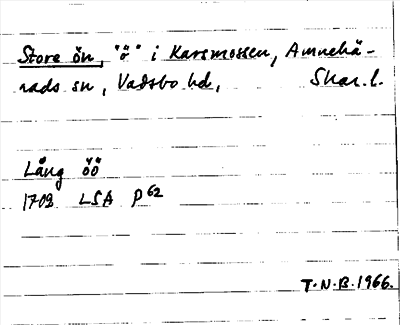 Store ön, "ö" i Karsmossen, Amnehä-
rads sn, Vadsbo hd, Skar. l.
Lång öö
1709 LSA P 62
T.N.B. 1966.